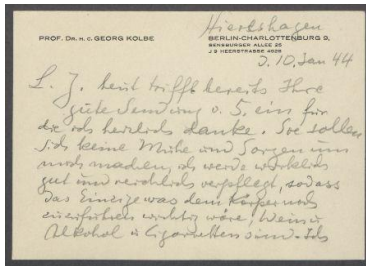 Hiershagen
PROF. DR. H. C. GEORG KOLBE
BERLIN-CHARLOTTENBURG 9,
SENSBURGER ALLEE 25
J 9 HEERSTRASSE 4628
d. 10. Jan 44
L. J. heut trifft bereits Ihre
gute Sendung v. 5. ein für
die ich herzlich danke. Sie sollen
sich keine Mühe und Sorgen um
mich machen, ich werde wirklich
gut und reichlich verpflegt, sodass
das Einzige was dem Körper noch
zuzuführen wichtig wäre,
Alkohol u. Cigaretten sind. Ich